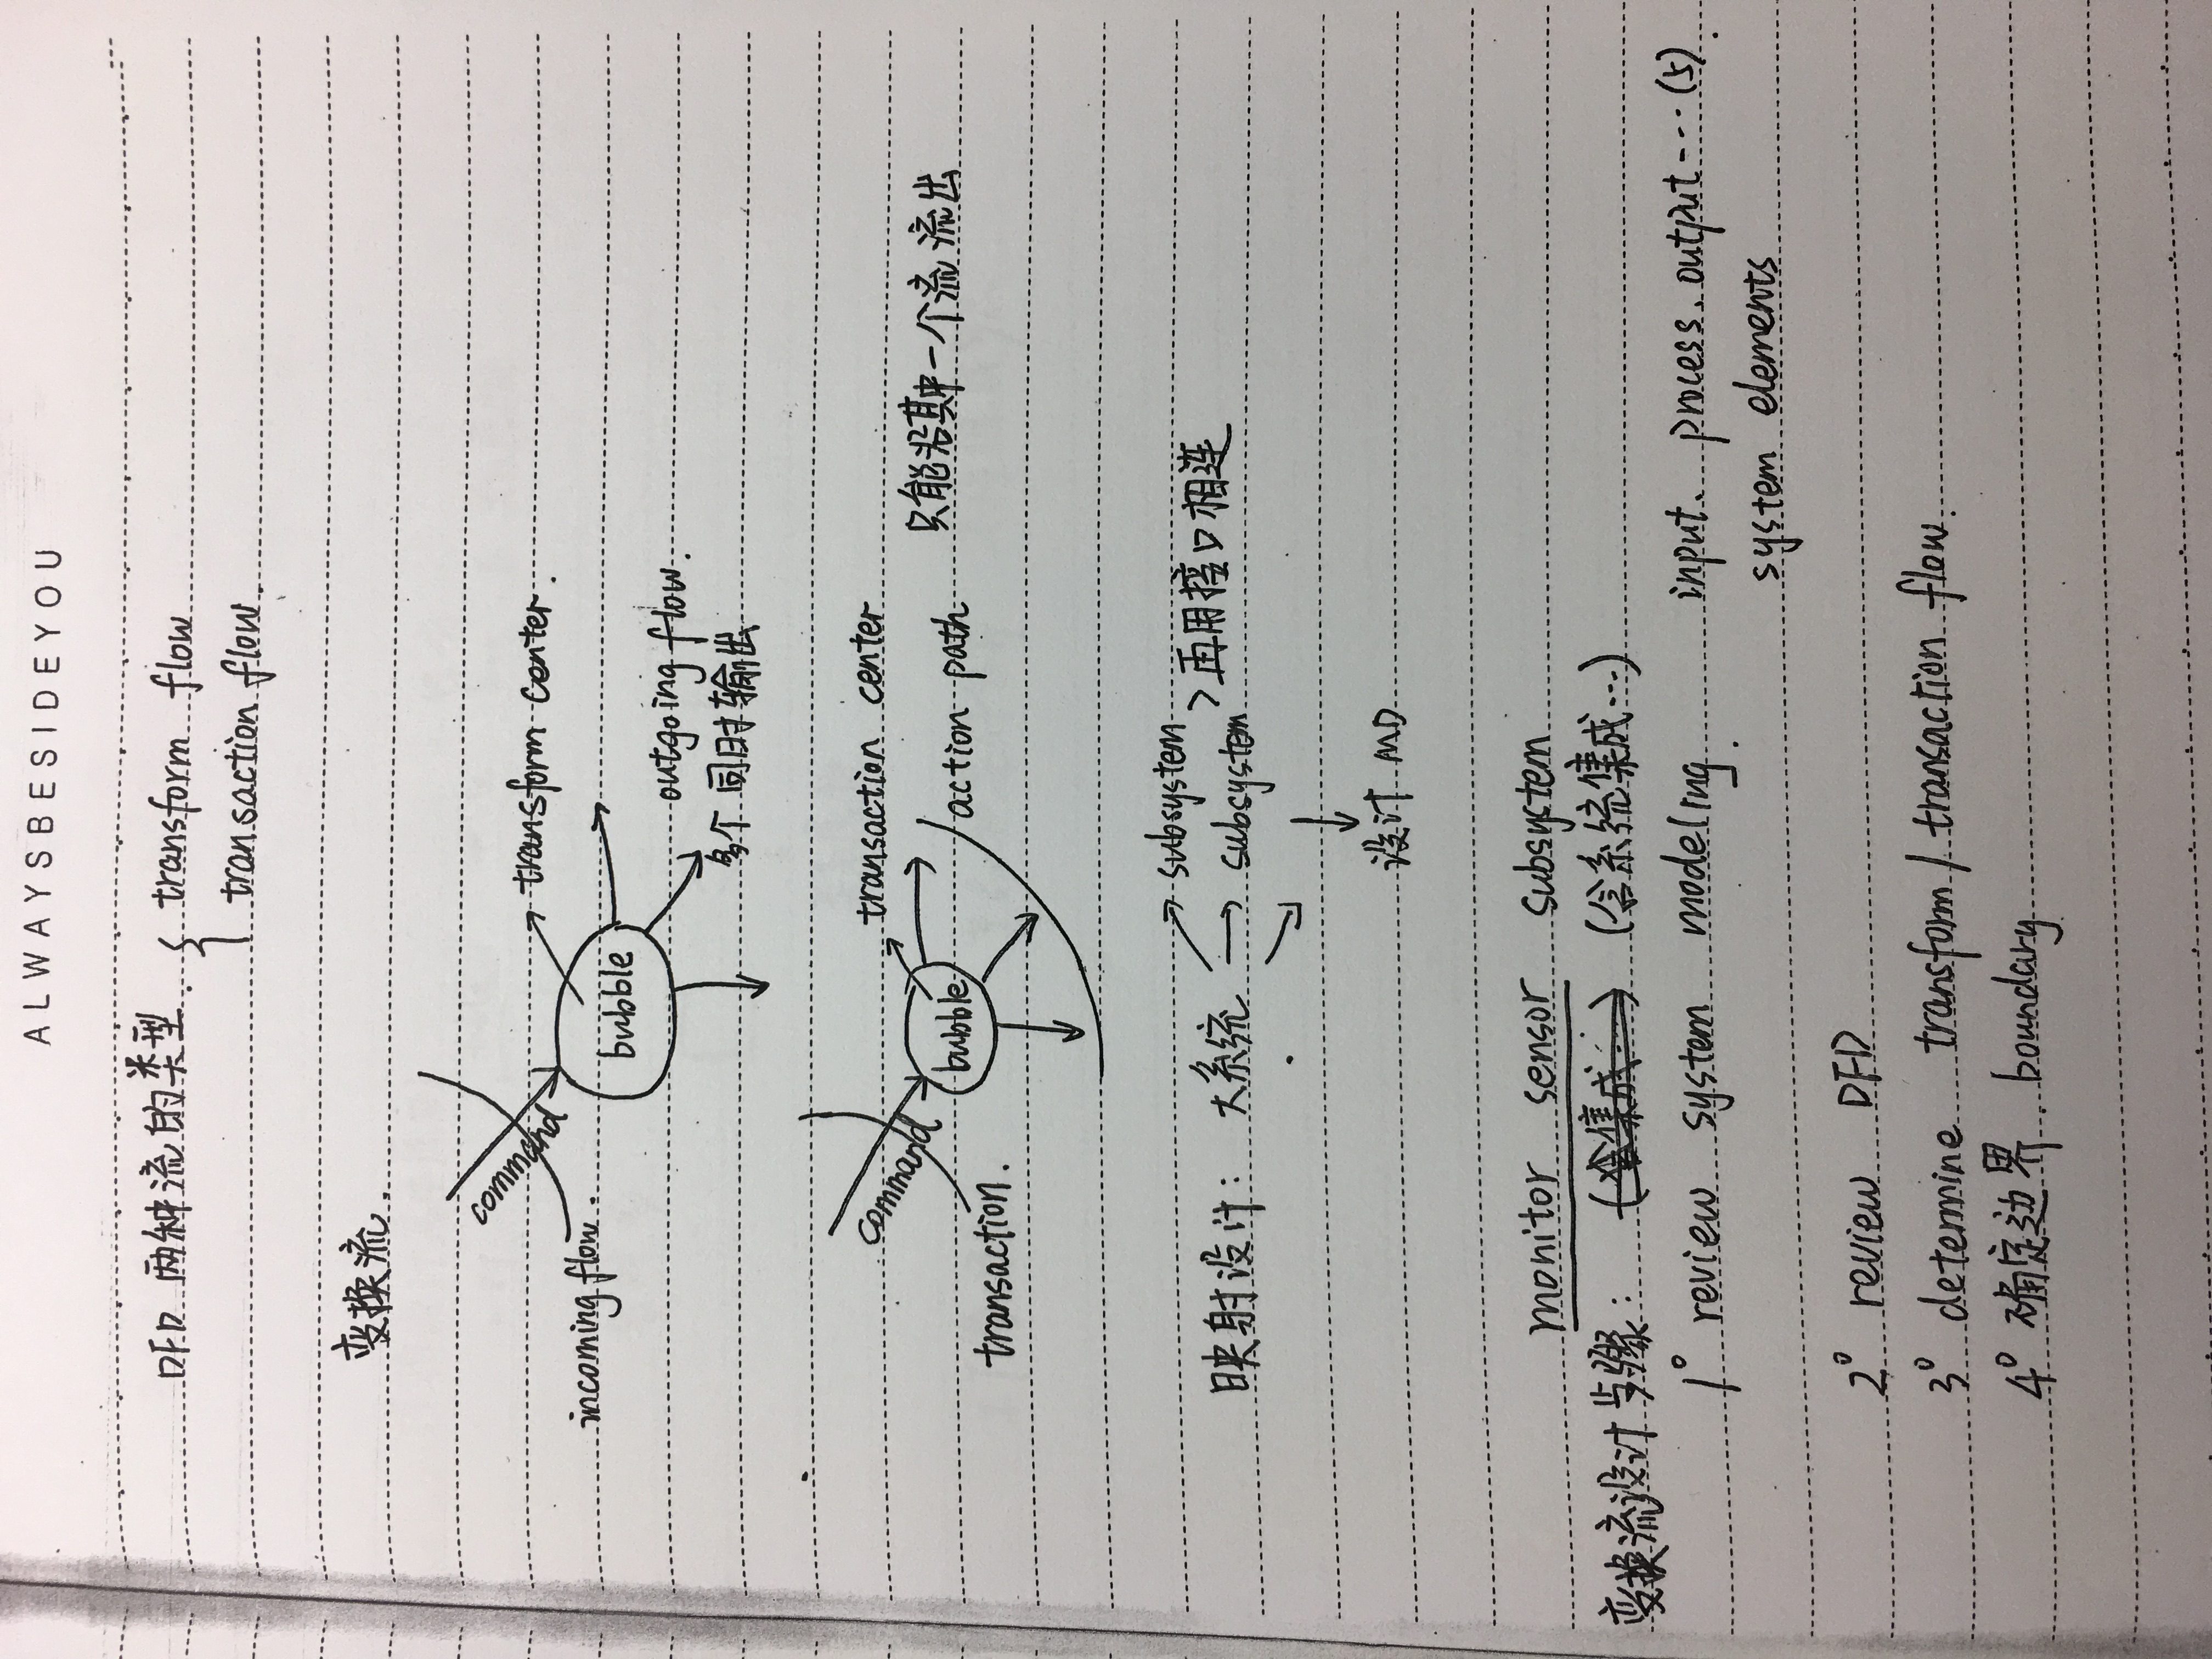 ALWAYSBESIDEYOU
DFD 两种流的类型. { transform flow
transaction flow.
变换流.
command
transform center.
incoming flow.
bubble
outgoing flow.
多个 同时输出
command
transaction center
bubble
action path 只能沿其中一个流 流出
transaction.
subsystem
映射设计: 大系统 subsystem > 再用接口相连
设计 MD
monitor sensor subsystem
变换流设计步骤: (含集成…) (含系统集成…)
1° review system modeling. input. process. output --- (5).
system elements
2° review DFD
3° determine transform / transaction flow.
4° 确定边界. boundary